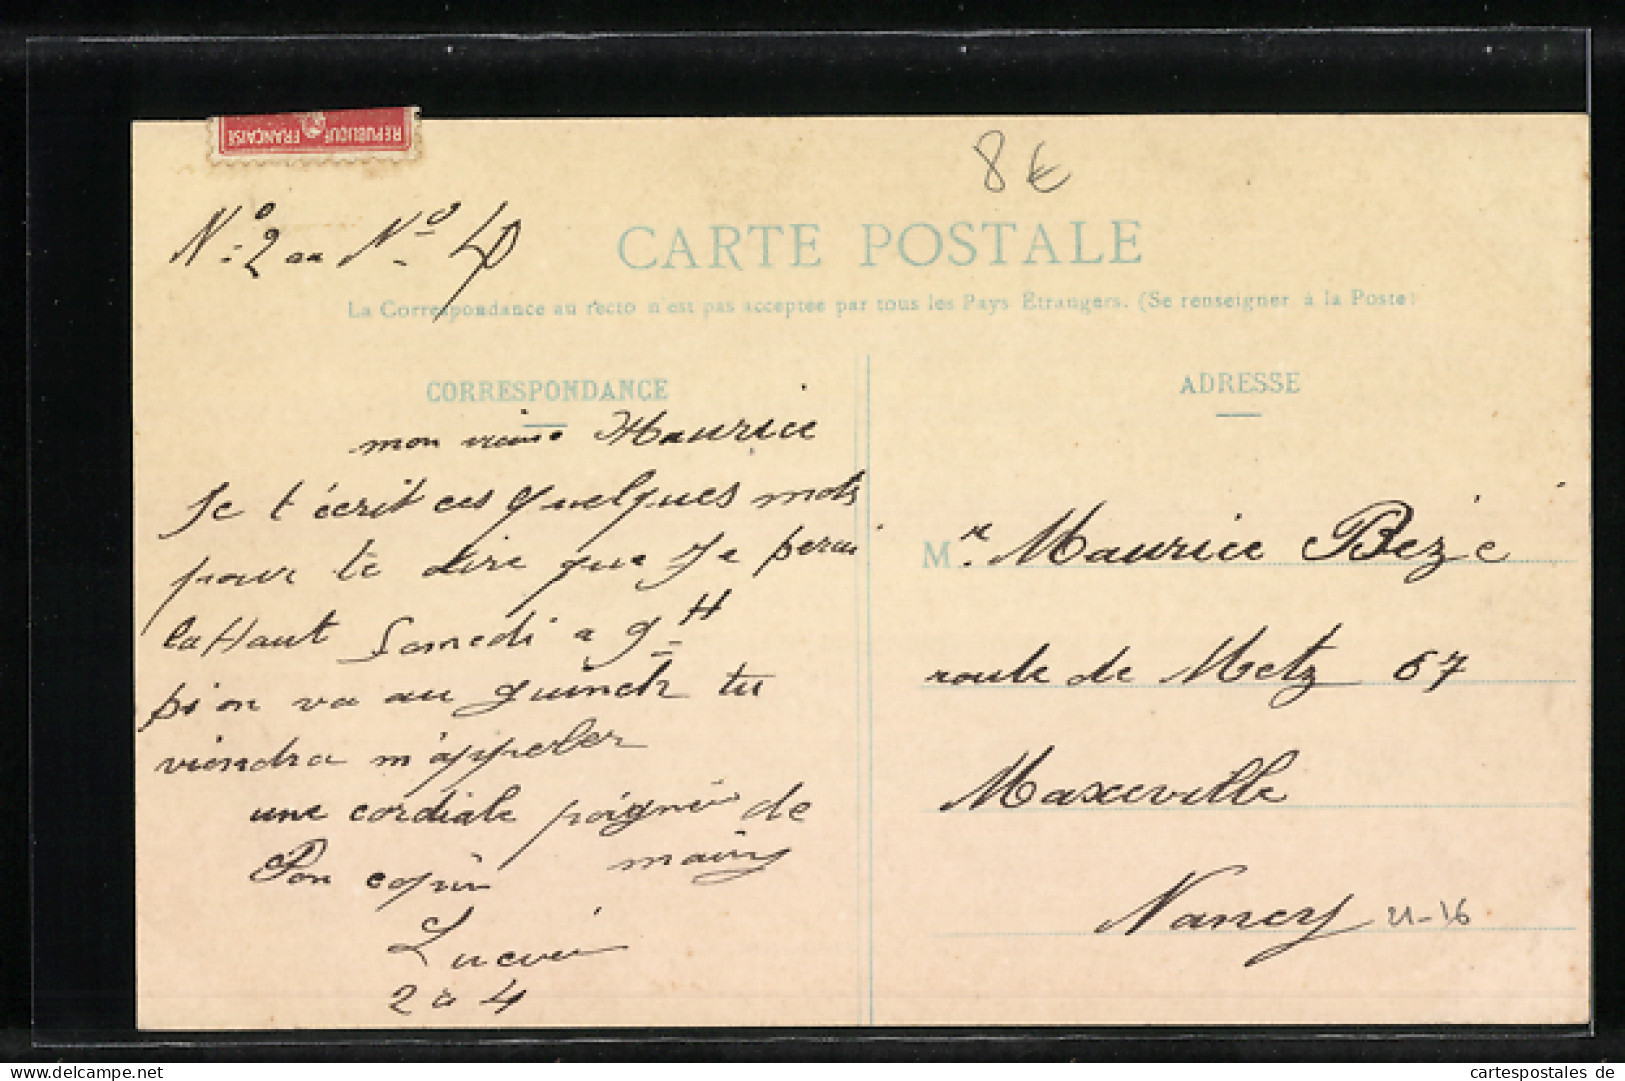 REPUBLIQUE FRANÇAISE
8 €
N° 2 au N° 4
CARTE POSTALE
La Correspondance au recto n'est pas acceptée par tous les Pays Etrangers. (Se renseigner à la Poste)
CORRESPONDANCE
mon vieux Maurice
Je t'écrit ces quelques mots
pour te dire que je serai
la Haut Samedi a 9 H
si on va au guinch tu
viendra m'appeler
une cordiale poignée de
mains
Ton copin
Lucien
2 à 4
ADRESSE
M r. Maurice Bezé
route de Metz 67
Maxeville
Nancy
21-16
www.delcampe.net
cartespostales de